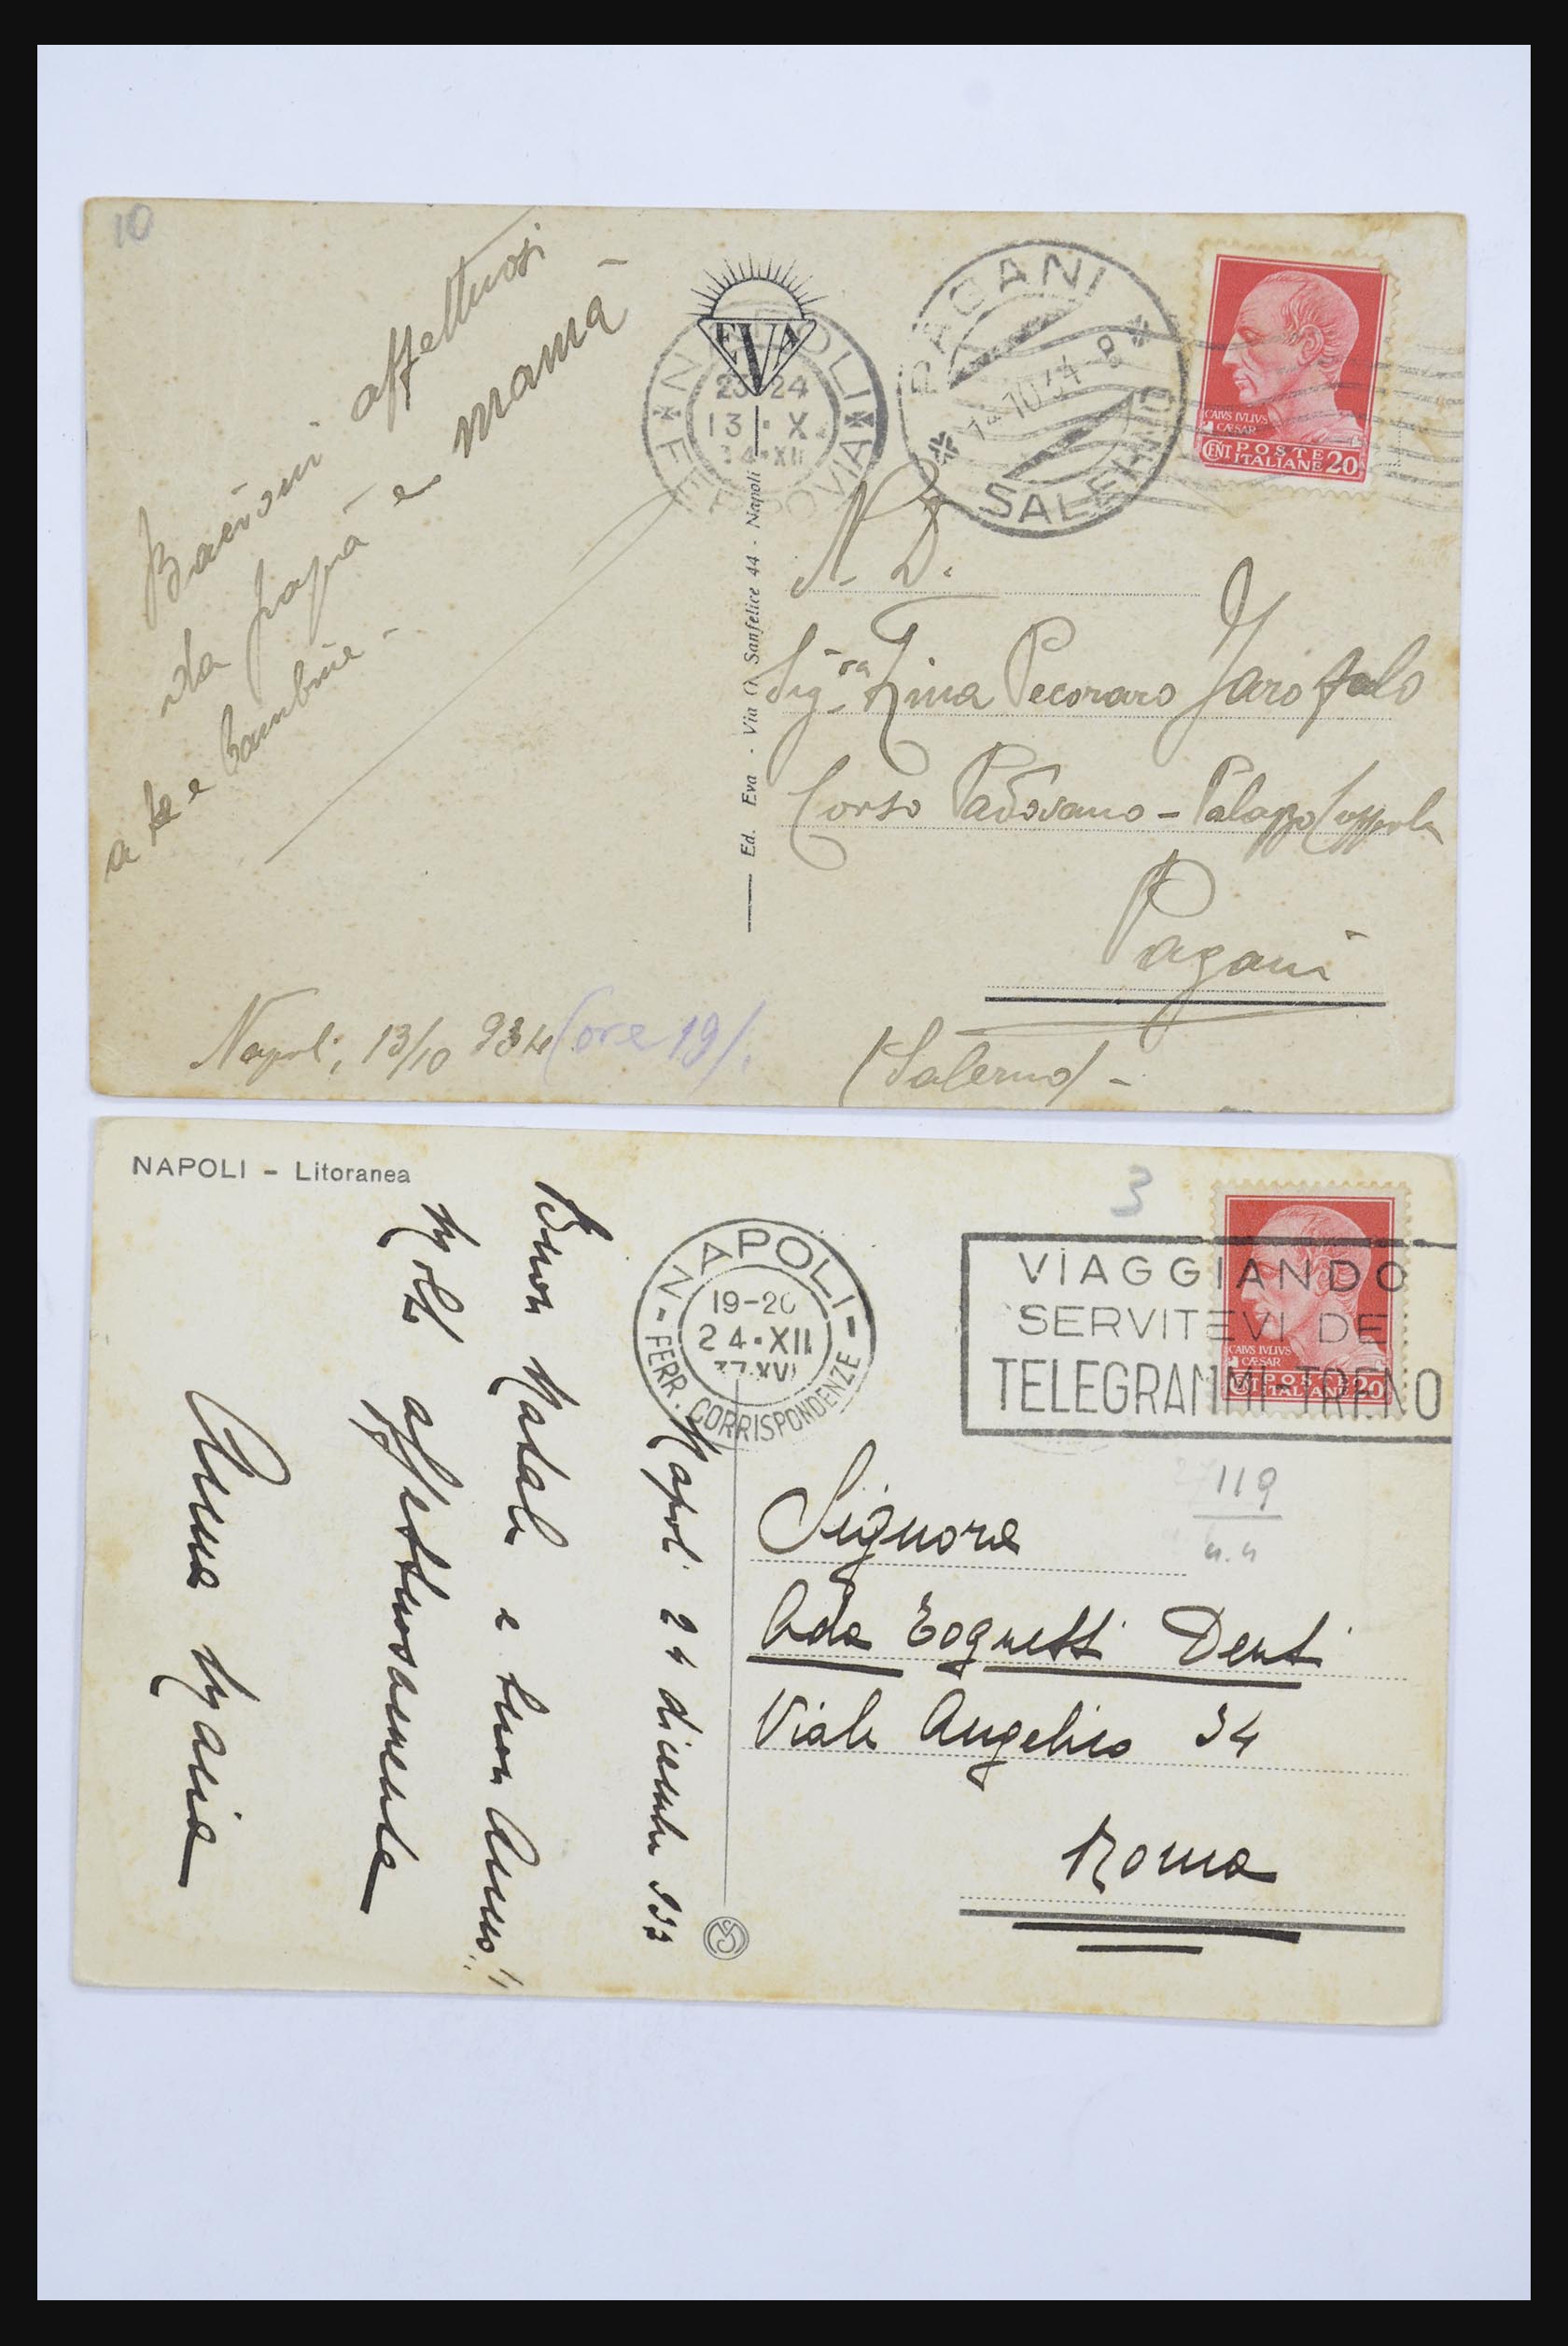 10
Bacioni affettuosi
da papà e mamà -
a te e bambine -
Napoli, 13/10 934 (ore 19/.
EVA
Ed. Eva - Via G. Sanfelice 44 - Napoli
NAPOLI
23-24
13 · X
34·XII
FERROVIA
PAGANI
14·10·34·8
SALERNO
CAIVS IVLIVS
CÆSAR
CENT POSTE
ITALIANE 20
N. D.
Sig.ra Pecoraro Garofalo
Corso Padovano - Palazzo
Pagani
(Salerno) -
NAPOLI - Litoranea
Napoli 24 dicembre 937
Buon Natale e buon Anno!!
Molto affettuosamente
Anna Maria
NAPOLI
19-20
24·XII
37·XVI
FERR. CORRISPONDENZE
3
VIAGGIANDO
SERVITEVI DEI
TELEGRAMMI-TRENO
CAIVS IVLIVS
CÆSAR
CENT POSTE
ITALIANE 20
119
Ada Denti
Viale Angelico 34
Roma